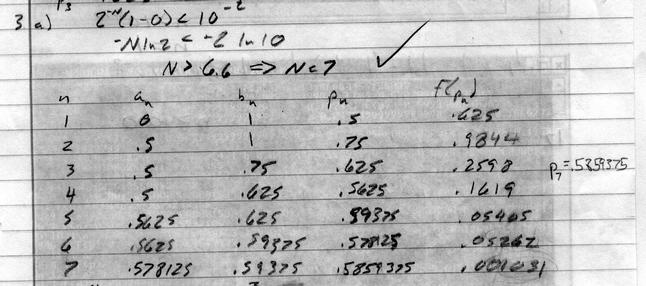 3 a) 2^-N (1-0) < 10^-2
-N ln 2 < -2 ln 10
N > 6.6 ⇒ N = 7 ✓
n a_n b_n p_n f(p_n)
1 0 1 .5 .625
2 .5 1 .75 .9844
3 .5 .75 .625 .2598 p_7 = .5859375
4 .5 .625 .5625 .1619
5 .5625 .625 .59375 .05405
6 .5625 .59375 .578125 .05262
7 .578125 .59375 .5859375 .001031